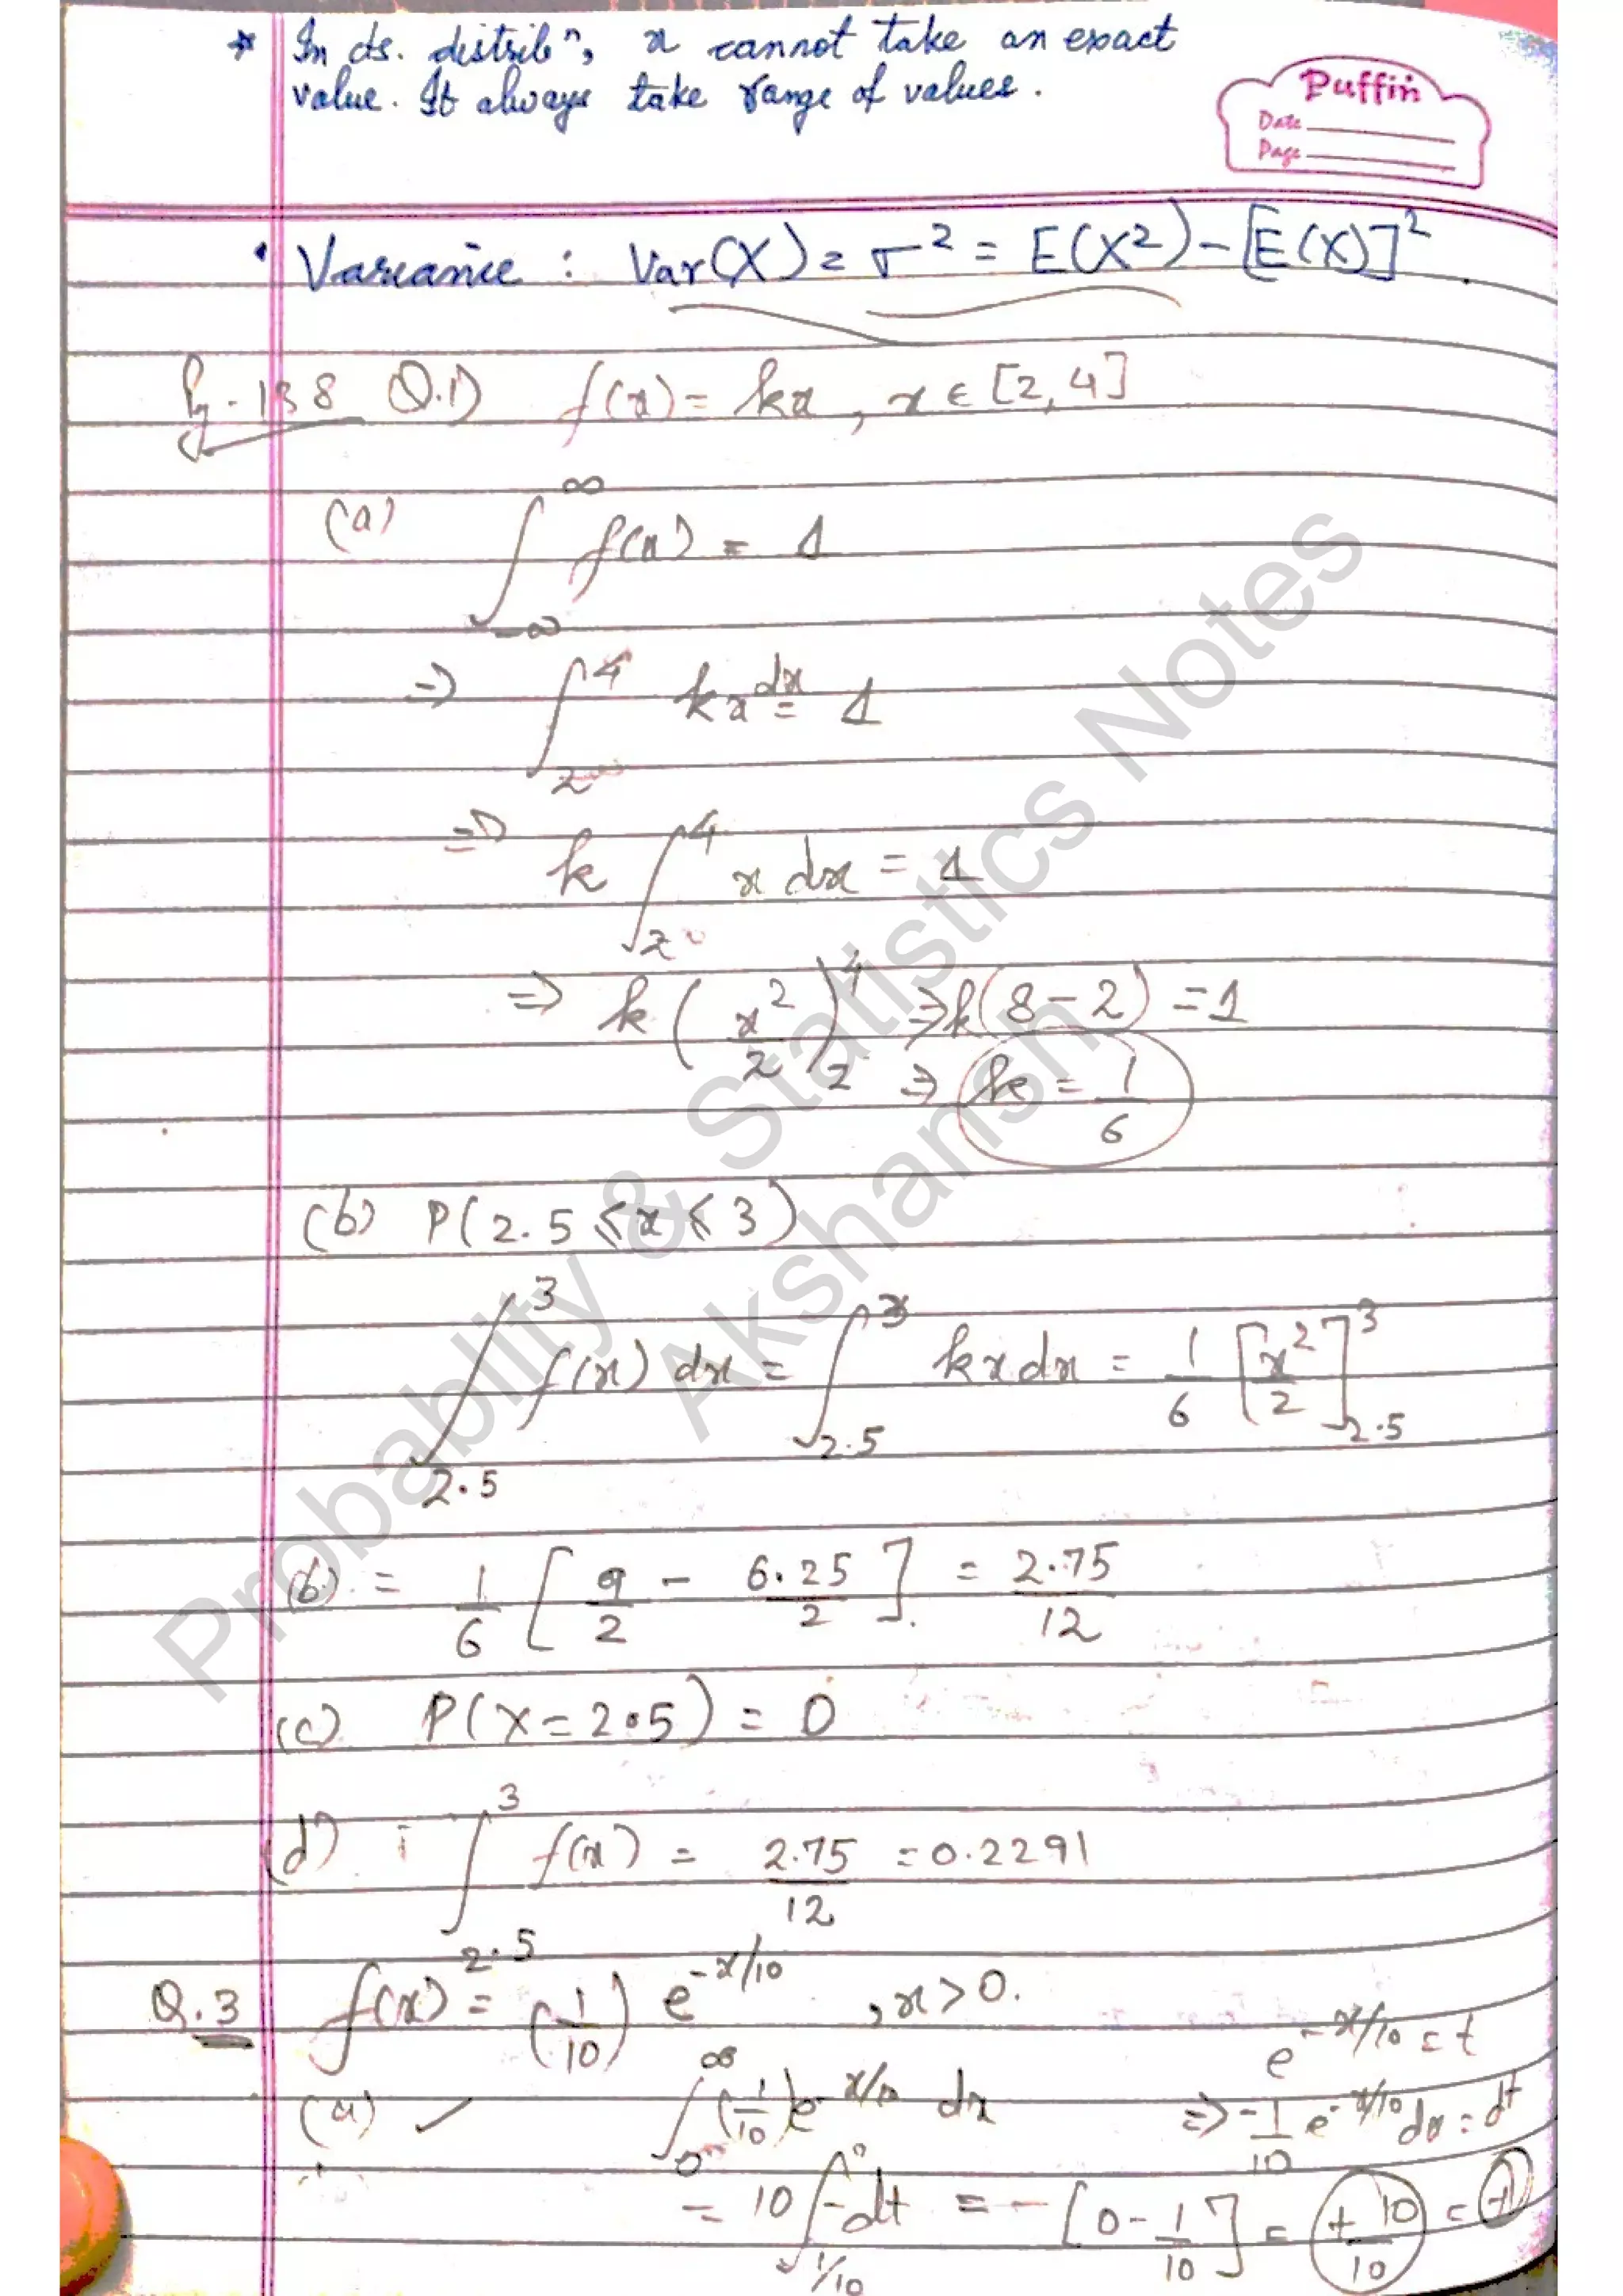 * In cts. distribⁿ, x cannot take an exact
value. It always take range of values.
Puffin
Date
Page
• Variance : Var(X) = σ² = E(X²) - [E(X)]².
Pg-138 Q.1) f(x) = kx, x ∈ [2, 4]
(a) ∫_{-∞}^{∞} f(x) = 1
=> ∫_2^4 kx dx = 1
=> k ∫_2^4 x dx = 1
=> k (x²/2)_2^4 => k(8-2) = 1
=> k = 1/6
(b) P(2.5 ≤ x ≤ 3)
∫_{2.5}^3 f(x) dx = ∫_{2.5}^3 kx dx = 1/6 [x²/2]_{2.5}^3
(b) = 1/6 [9/2 - 6.25/2] = 2.75/12
(c) P(X = 2.5) = 0
(d) ∫_{2.5}^3 f(x) = 2.75/12 = 0.2291
Q.3 f(x) = (1/10) e^{-x/10}, x > 0.
e^{-x/10} = t
(a) ✓ ∫_0^∞ (1/10) e^{-x/10} dx => -1/10 e^{-x/10} dx = dt
= 10 ∫_{1/10}^0 -dt = -[0 - 1/10] = +10/10 = +1
Probablity & Statistics Notes
Akshansh